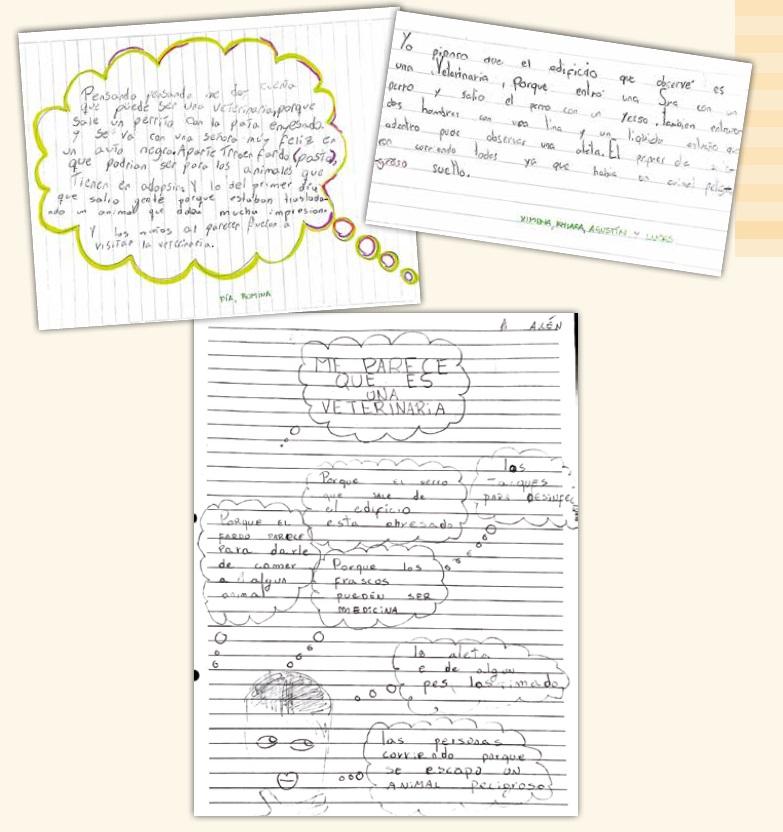 Pensando pensando me doy cuenta
que puede ser una veterinaria, porque
sale un perrito con la pata enyesada
y se va con una señora muy feliz en
un auto negro. Aparte Traen fardo (pasto)
que podrian ser para los animales que
Tienen en adopsión. Y lo del primer dia
que salio gente porque estaban traslada-
ndo un animal que daba mucha impresion.
Y los niños al parecer fueron a
visitar la vetetinaria.
PÍA, ROMINA
Yo pienso que el edificio que observe es
una Veterinaria, Porque entró una Sra con un
perro y salio el perro con un Yeso. tambien entraron
dos hombres con una tina y un liquido extraño que
adentro pude observar una aleta. El primer dia
corriendo todos ya que habia un animal
suelto.
XIMENA, KHIARA, AGUSTÍN Y LUCAS
AILÉN
ME PARECE
QUE ES
UNA
VETERINARIA
Porque el perro
que sale de
el edificio
esta
los
Tanques
para DESINFEC
PORQUE EL
FARDO PARECE
Para darle
de comer
a algun
animal
Porque los
frascos
pueden SER
MEDICINA
la aleta
e de algun
pes, lastimado
las personas
corriendo porque
se escapo UN
ANIMAL Peligroso